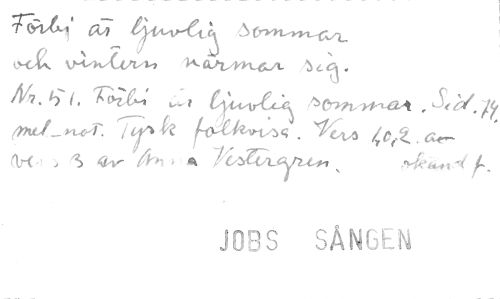 Förbi är ljuvlig sommar
och vintern närmar sig.
Nr. 51. Förbi är ljuvlig sommar. Sid. 74.
mel-not. Tysk folkvisa. Vers 1,o,2. av
vers 3 av Anna Vestergren. okänd f.
JOBS SÅNGEN